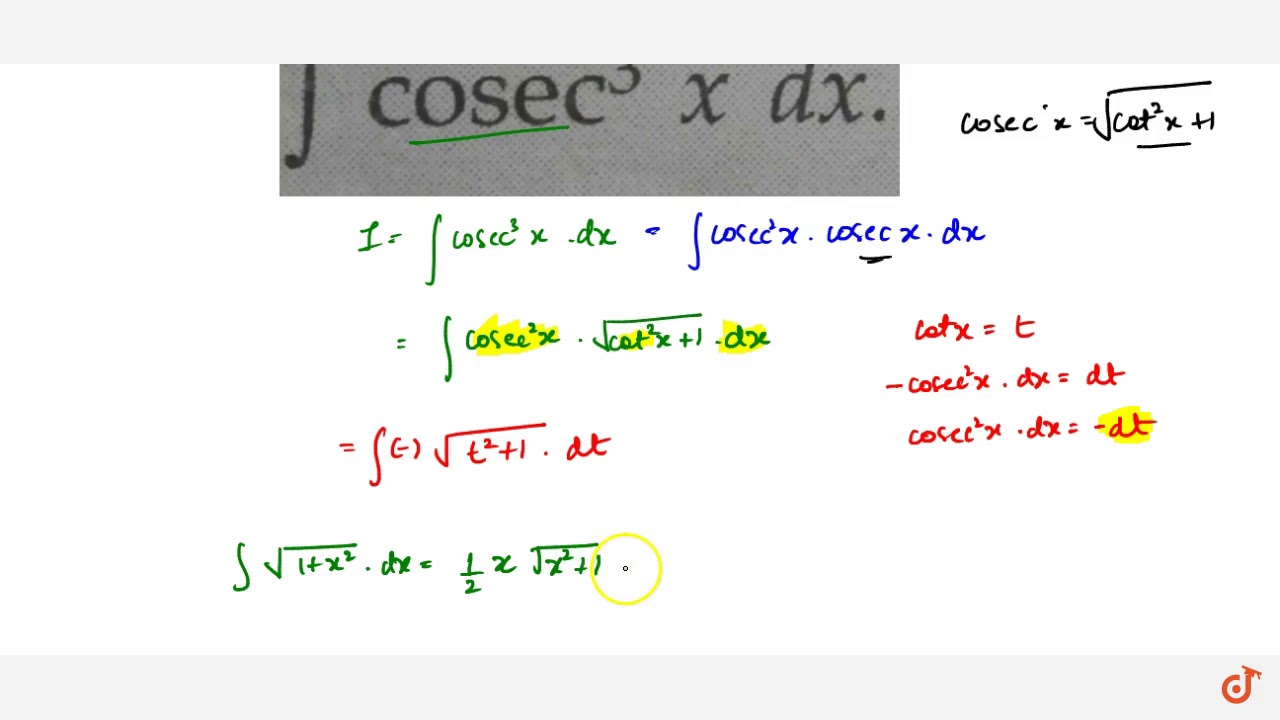 ∫ cosec³ x dx.
cosec x = √(cot²x + 1)
I = ∫ cosec³ x . dx = ∫ cosec²x . cosec x . dx
= ∫ cosec²x . √(cot²x + 1) . dx
cot x = t
- cosec²x . dx = dt
cosec²x . dx = - dt
= ∫ (-) √(t² + 1) . dt
∫ √(1 + x²) . dx = 1/2 x √(x² + 1)